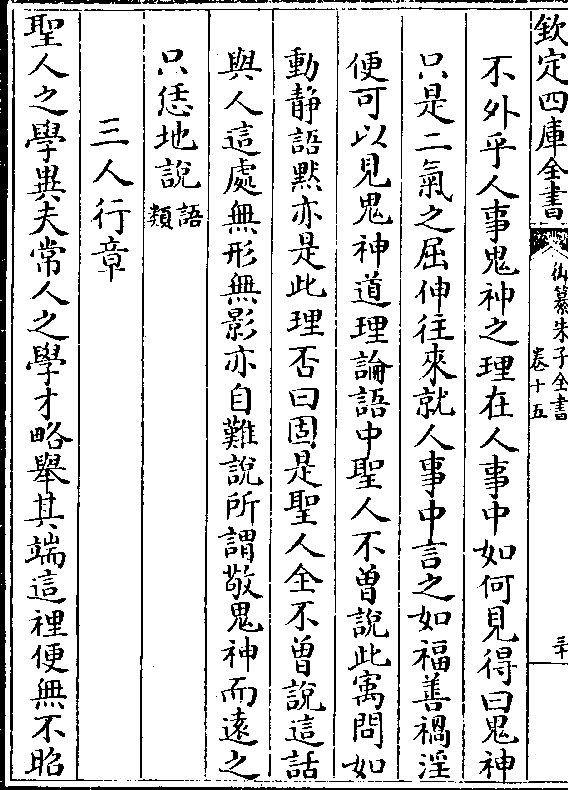 欽定四庫全書
御纂朱子全書
卷十五
三十
不外乎人事鬼神之理在人事中如何見得曰鬼神
只是二氣之屈伸往來就人事中言之如福善禍淫
便可以見鬼神道理論語中聖人不曽說此寓問如
動靜語黙亦是此理否曰固是聖人全不曽說這話
與人這處無形無影亦自難說所謂敬鬼神而遠之
只恁地說語類
三人行章
聖人之學異夫常人之學才略舉其端這裡便無不昭